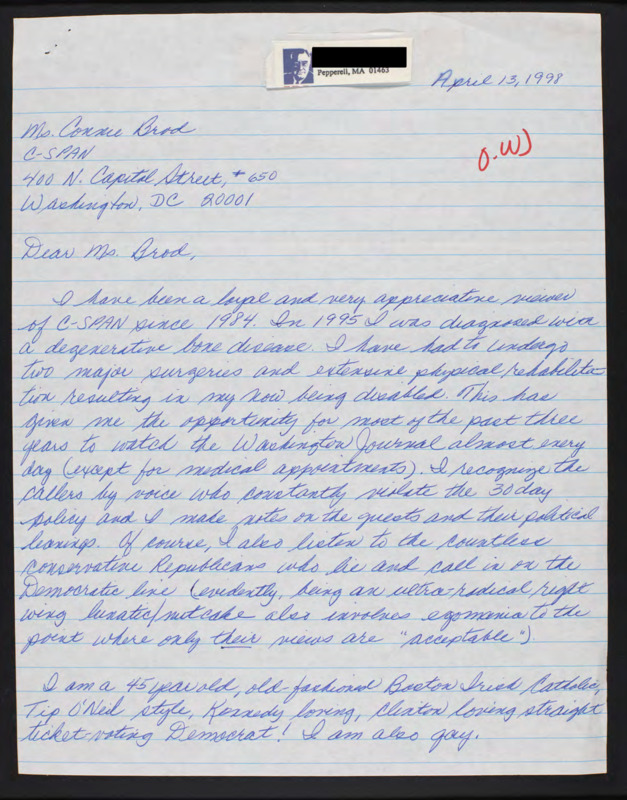 Pepperell, MA 01463
April 13, 1998
Ms. Connie Brod
C-SPAN
400 N. Capitol Street, #650
Washington, DC 20001
O.W)
Dear Ms. Brod,
I have been a loyal and very appreciative viewer
of C-SPAN since 1984. In 1995 I was diagnosed with
a degenerative bone disease. I have had to undergo
two major surgeries and extensive physical rehabilita-
tion resulting in my now being disabled. This has
given me the opportunity for most of the past three
years to watch the Washington Journal almost every
day (except for medical appointments). I recognize the
callers by voice who constantly violate the 30 day
policy and I make notes on the guests and their political
leanings. Of course, I also listen to the countless
conservative Republicans who lie and call in on the
Democratic line (evidently, being an ultra-radical, right
wing lunatic/nutcake also involves egomania to the
point where only their views are "acceptable").
I am a 45 year old, old-fashioned Boston Irish Catholic,
Tip O'Neil style, Kennedy loving, Clinton loving straight
ticket-voting Democrat! I am also gay.